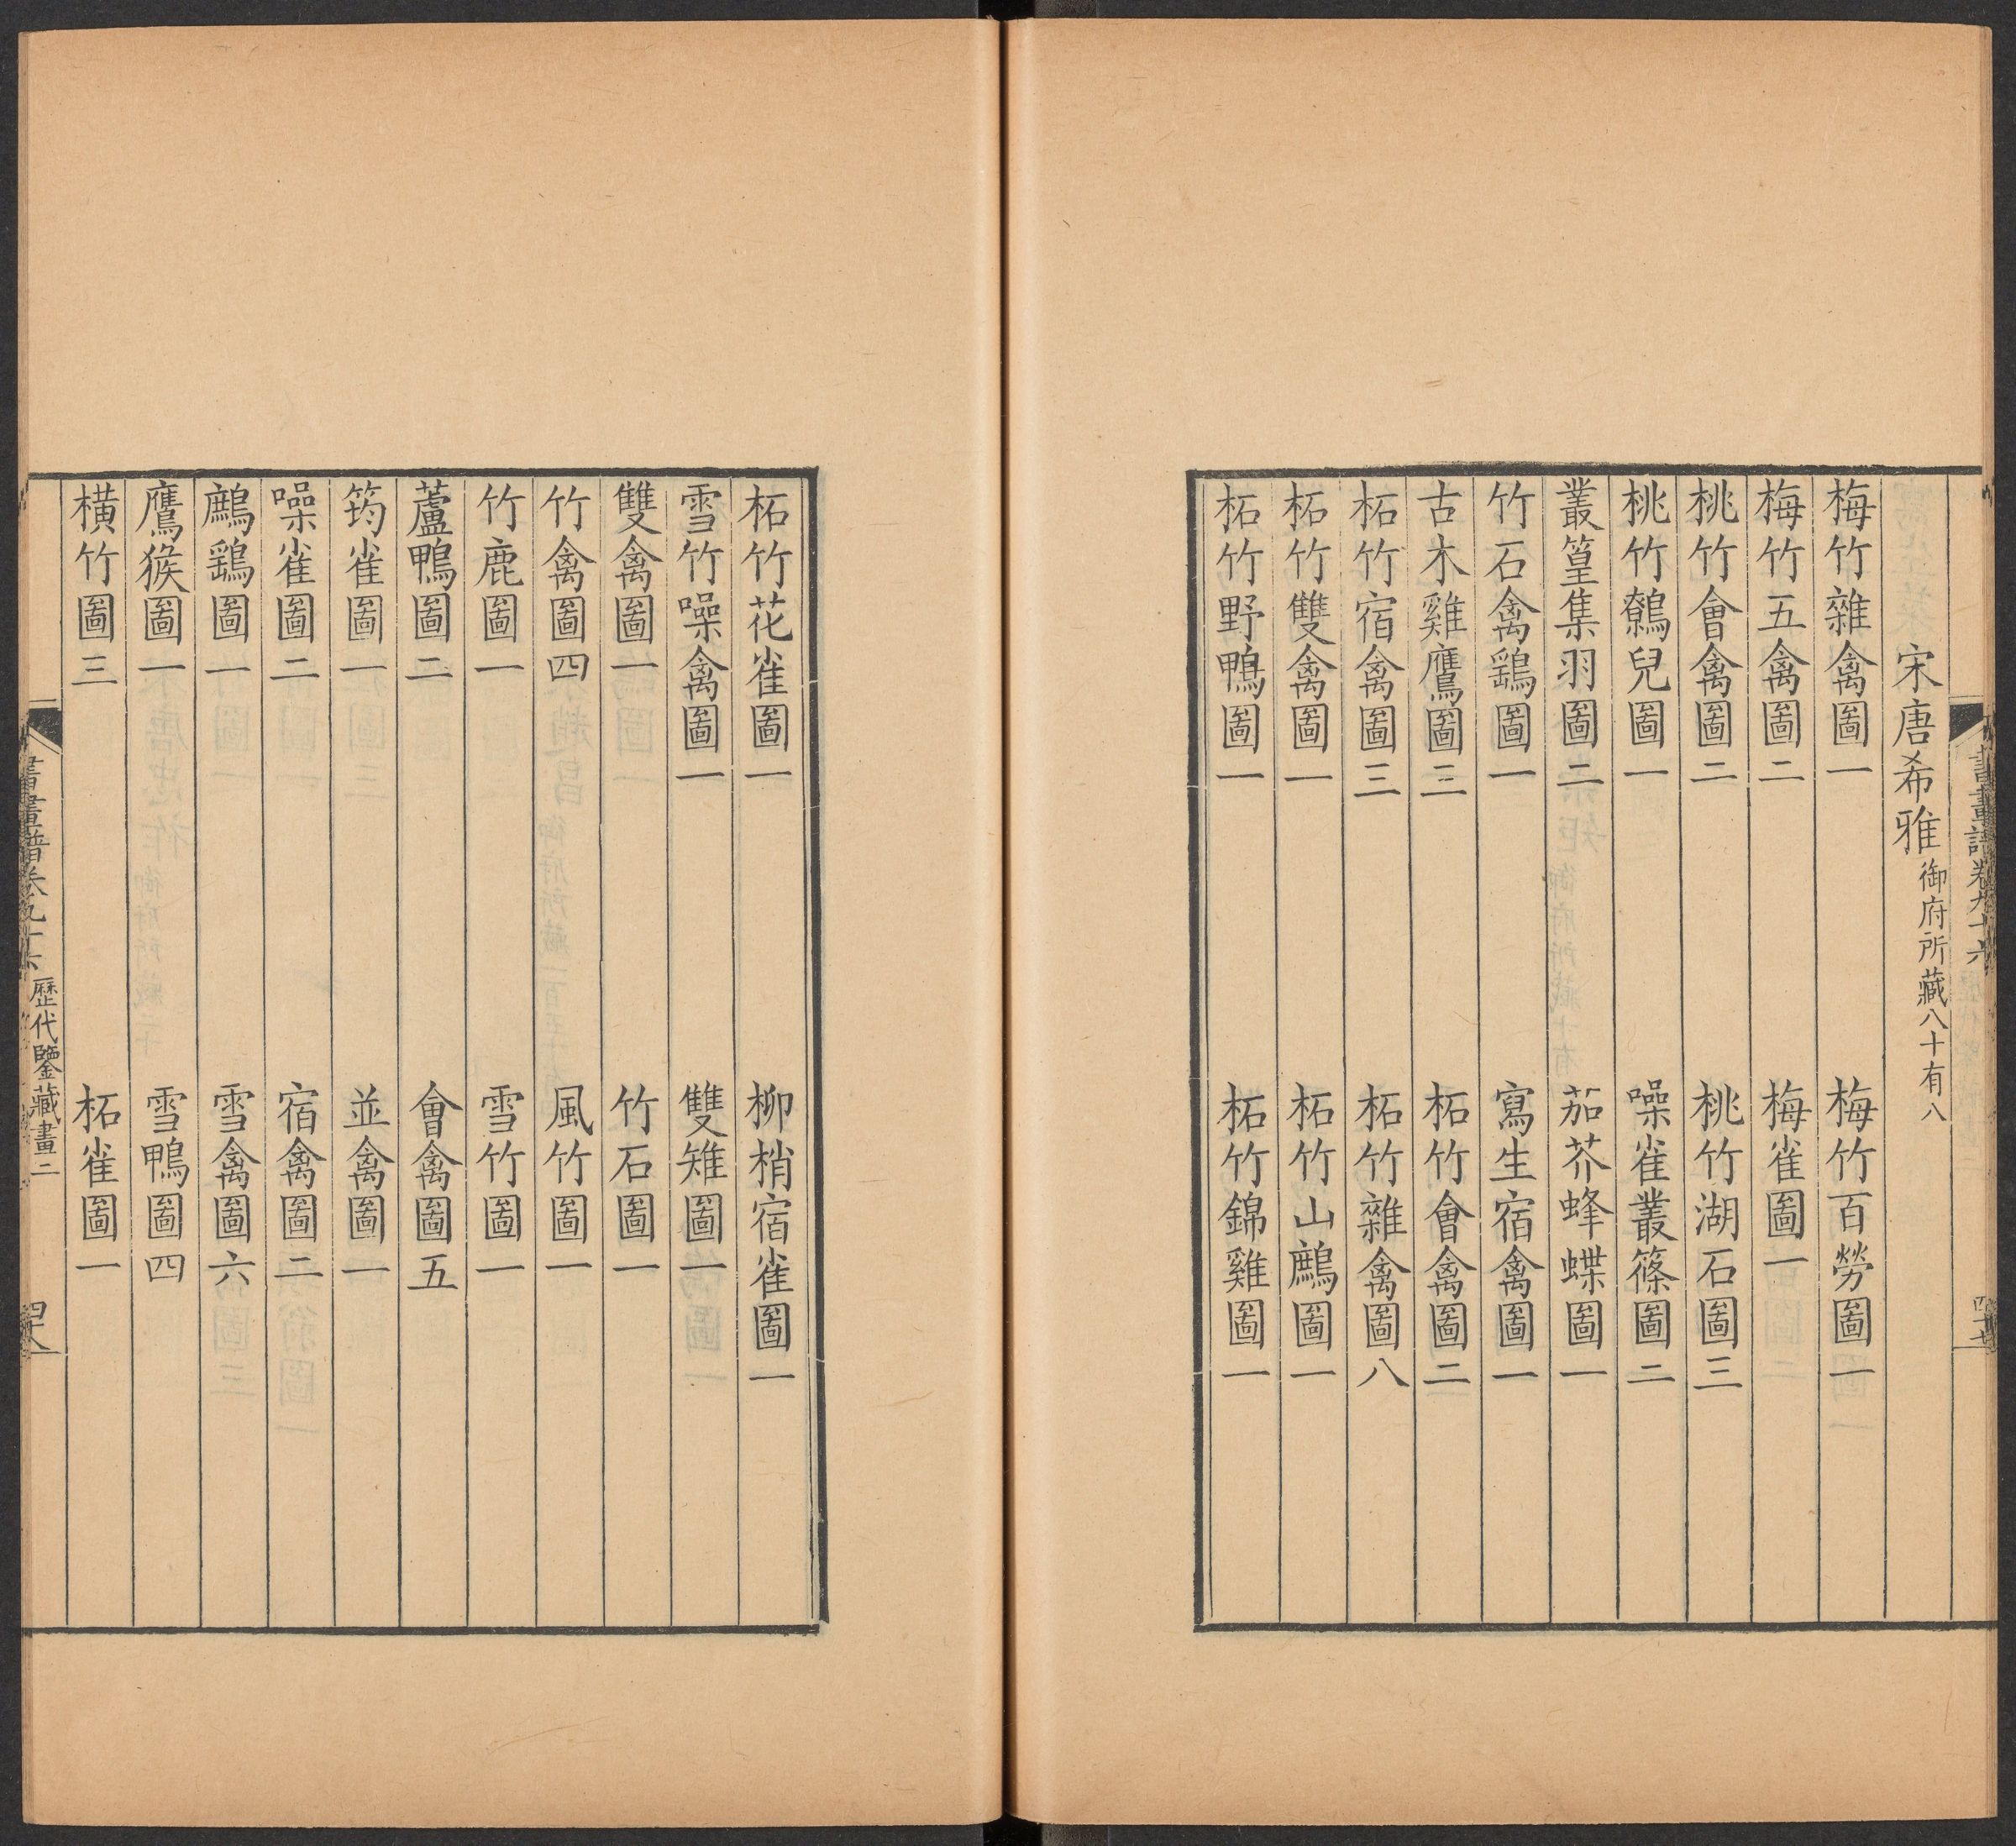 宋唐希雅御府所藏八十有八
梅竹雜禽圖一　梅竹百勞圖一
梅竹五禽圖二　梅雀圖一
桃竹會禽圖二　桃竹湖石圖三
桃竹鶺兒圖一　噪雀叢篠圖二
叢篁集羽圖二　茄芥蜂蝶圖一
竹石禽鷂圖一　寫生宿禽圖一
古木雞鷹圖三　柘竹會禽圖二
柘竹宿禽圖三　柘竹雜禽圖八
柘竹雙禽圖一　柘竹山鷓圖一
柘竹野鴨圖一　柘竹錦雞圖一
柘竹花雀圖一　柳梢宿雀圖一
雪竹噪禽圖一　雙雉圖一
雙禽圖一　竹石圖一
竹禽圖四　風竹圖一
竹鹿圖一　雪竹圖一
蘆鴨圖二　會禽圖五
筠雀圖一　並禽圖一
噪雀圖二　宿禽圖二
鷓鷂圖一　雪禽圖六
鷹猴圖一　雪鴨圖四
橫竹圖三　柘雀圖一
書畫譜卷九十六　歷代鑒藏畫二　四十八